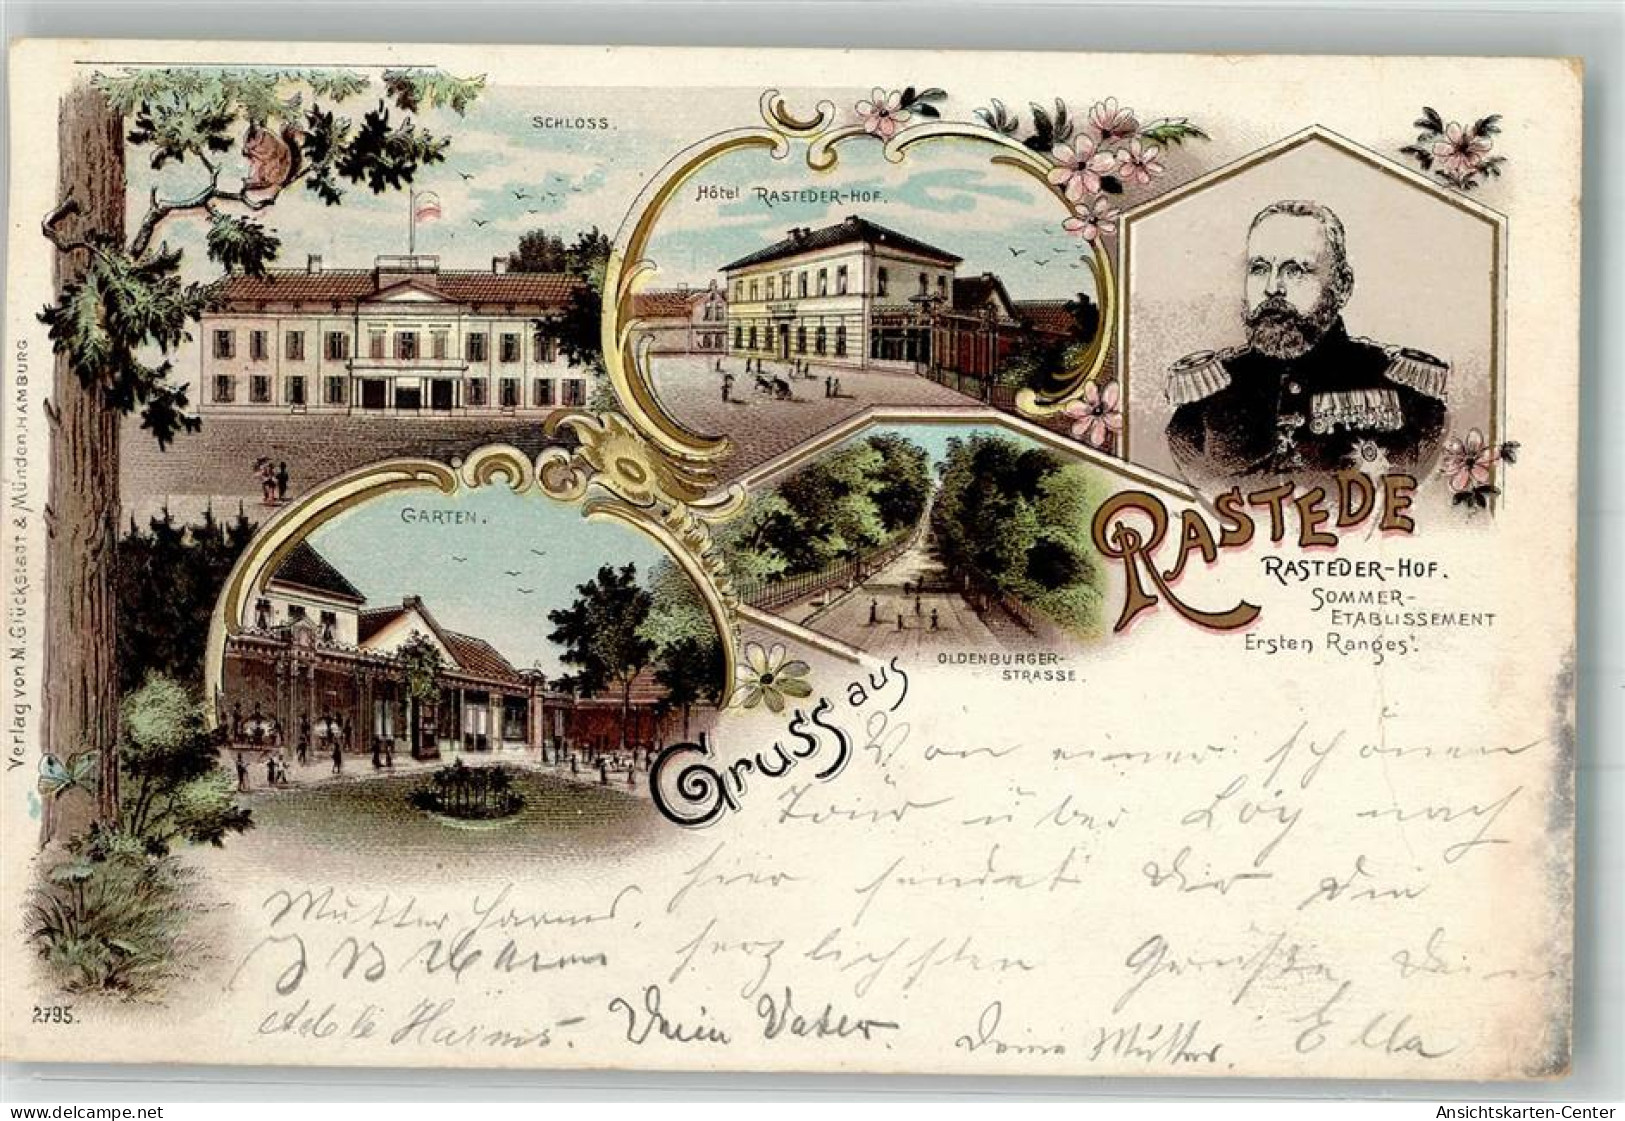 SCHLOSS.
Hôtel RASTEDER-HOF.
GARTEN.
OLDENBURGER-
STRASSE.
Gruss aus
RASTEDE
RASTEDER-HOF.
SOMMER-
ETABLISSEMENT
Ersten Ranges.
Verlag von M. Glückstadt & Münden, HAMBURG
2795.
Von einer schönen
Tour über Loy nach
hier sendet Dir die
herzlichsten Grüße Deine
Ella
Mutter Harms.
Adele Harms.
Dein Vater.
Deine Mutter.
delcampe.net
Ansichtskarten-Center